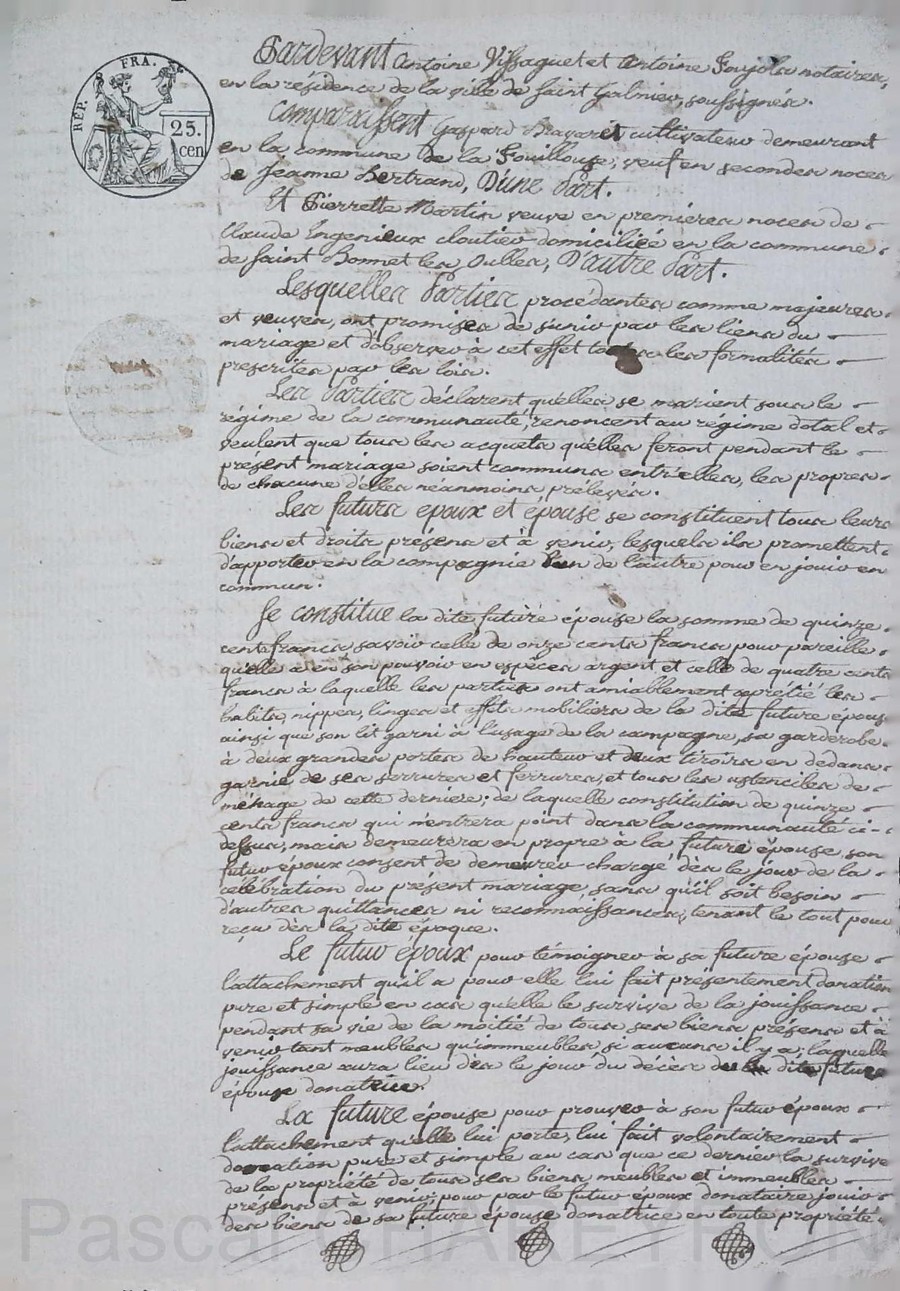 RÉP. FRA.
25.
cen
Pardevant Antoine Vissaguet et Antoine Goujola notaires,
en la résidence de la ville de saint Galmier, soussignés.
Comparaissent Gaspard Bravard cultivateur demeurant
en la commune de la Fouillouse, veuf en secondes noces
de Jeanne Bertrand, D'une Part.
Et Pierrette Martin veuve en premières noces de
Claude Ingenieux cloutier domiciliée en la commune
de saint Bonnet les Oulles, D'autre Part.
Lesquelles Parties procédantes comme majeures
et veuves, ont promises de s'unir par les liens du
mariage et d'observer à cet effet toutes les formalités
prescrites par les lois.
Les Parties déclarent quelles se marient sous le
régime de la communauté, renoncent au régime dotal et
veulent que tous les acquets quélles feront pendant le
présent mariage soient communs entr'elles, les propres
de chacune d'elles néanmoins prélevés.
Les futurs époux et épouse se constituent tous leurs
biens et droits présens et à venir, lesquels ils promettent
d'apporter en la compagnie l'un de l'autre pour en jouir en
commun.
Se constitue la dite future épouse la somme de quinze
cents francs savoir celle de onze cents francs pour pareille
qu'elle a en son pouvoir en espèces argent et celle de quatre cents
francs à laquelle les parties ont amiablement apprétié les
habits, nippes, linges et effets mobiliers de la dite future épouse
ainsi que son lit garni à l'usage de la campagne, sa garderobe
à deux grandes portes de hauteur et deux tiroirs en dedans
garnie de ses serrures et ferrures, et tous les ustenciles de
ménage de cette derniere; de laquelle constitution de quinze
cents francs qui n'entrera point dans la communauté ci-
dessus, mais demeurera en propre à la future épouse, son
futur époux consent de demeurer chargé dès le jour de la
célébration du présent mariage, sans qu'il soit besoin
d'autres quittances ni reconnaissances, tenant le tout pour
reçu dès la dite époque.
Le futur époux pour témoigner à sa future épouse
l'attachement qu'il a pour elle lui fait présentement donation
pure et simple en cas qu'elle le survive de la jouissance
pendant sa vie de la moitié de tous ses biens présens et à
venir tant meubles qu'immeubles, si aucuns il y a; laquelle
jouissance aura lieu dès le jour du décès de la dite future
épouse donatrice.
La future épouse pour prouver à son futur époux
l'attachement quélle lui porte, lui fait volontairement
donation pure et simple au cas que ce dernier la survive
de la propriété de tous ses biens meubles et immeubles
présens et à venir pour par le futur époux donataire jouir
des biens de sa future épouse donatrice en toute propriété.
Pascal CHARETRON